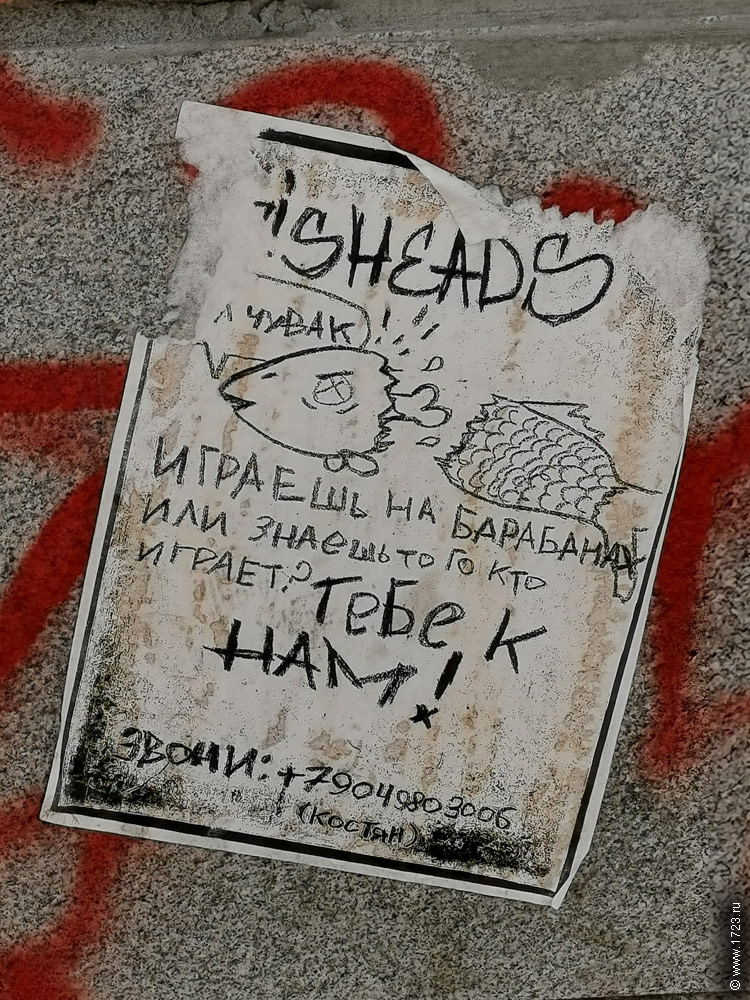 iSHEADS
ЧУВАК!
ИГРАЕШЬ НА БАРАБАНАХ
ИЛИ ЗНАЕШЬ ТОГО КТО
ИГРАЕТ?
ТЕБЕ К
НАМ!
ЗВОНИ: +79049803006
(КОСТЯН)
© www.1723.ru